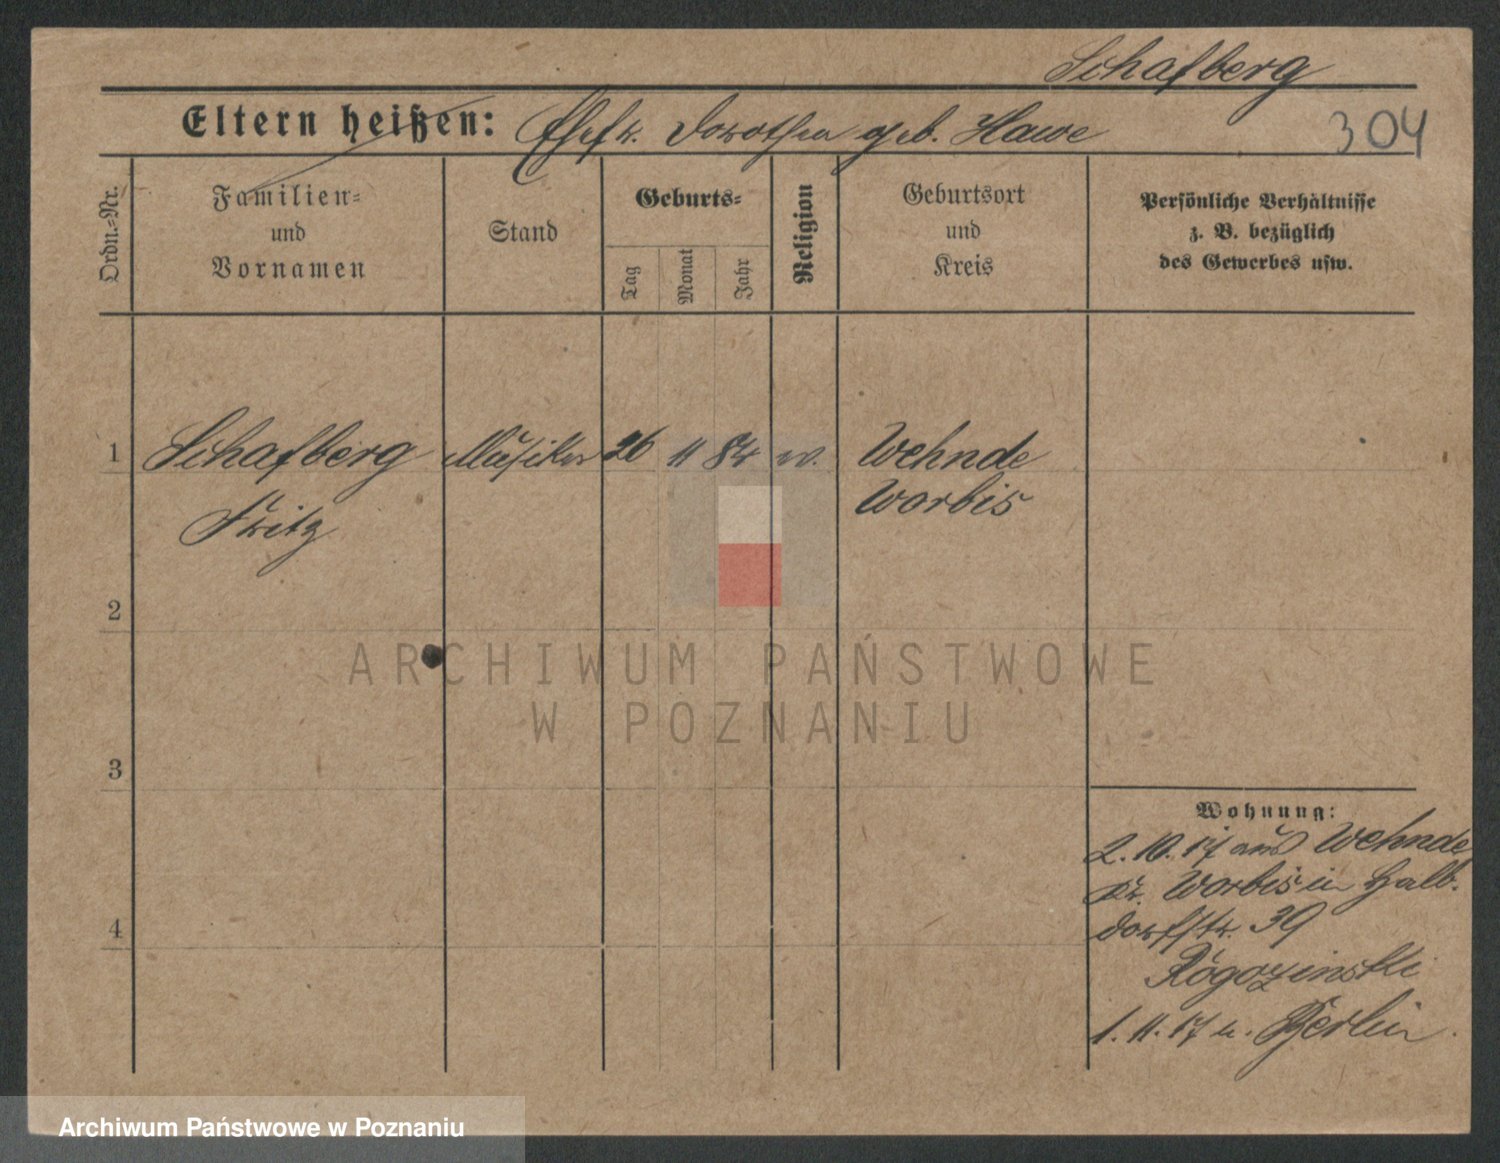 Schafberg
Eltern heißen: Ehefr. Dorothea geb. Hawe
304
Ordn.-Nr.
Familien-
und
Vornamen
Stand
Geburts-
Tag
Monat
Jahr
Religion
Geburtsort
und
Kreis
Persönliche Verhältnisse
z. B. bezüglich
des Gewerbes usw.
1
Schafberg Musiker 26 11 84 Wehnde
Fritz Worbis
2
3
4
Wohnung:
2.10.17 aus Wehnde
Kr. Worbis in Halb.
dorfstr. 39
Rogozinski
1.11.17 n. Berlin.
ARCHIWUM PAŃSTWOWE
W POZNANIU
Archiwum Państwowe w Poznaniu